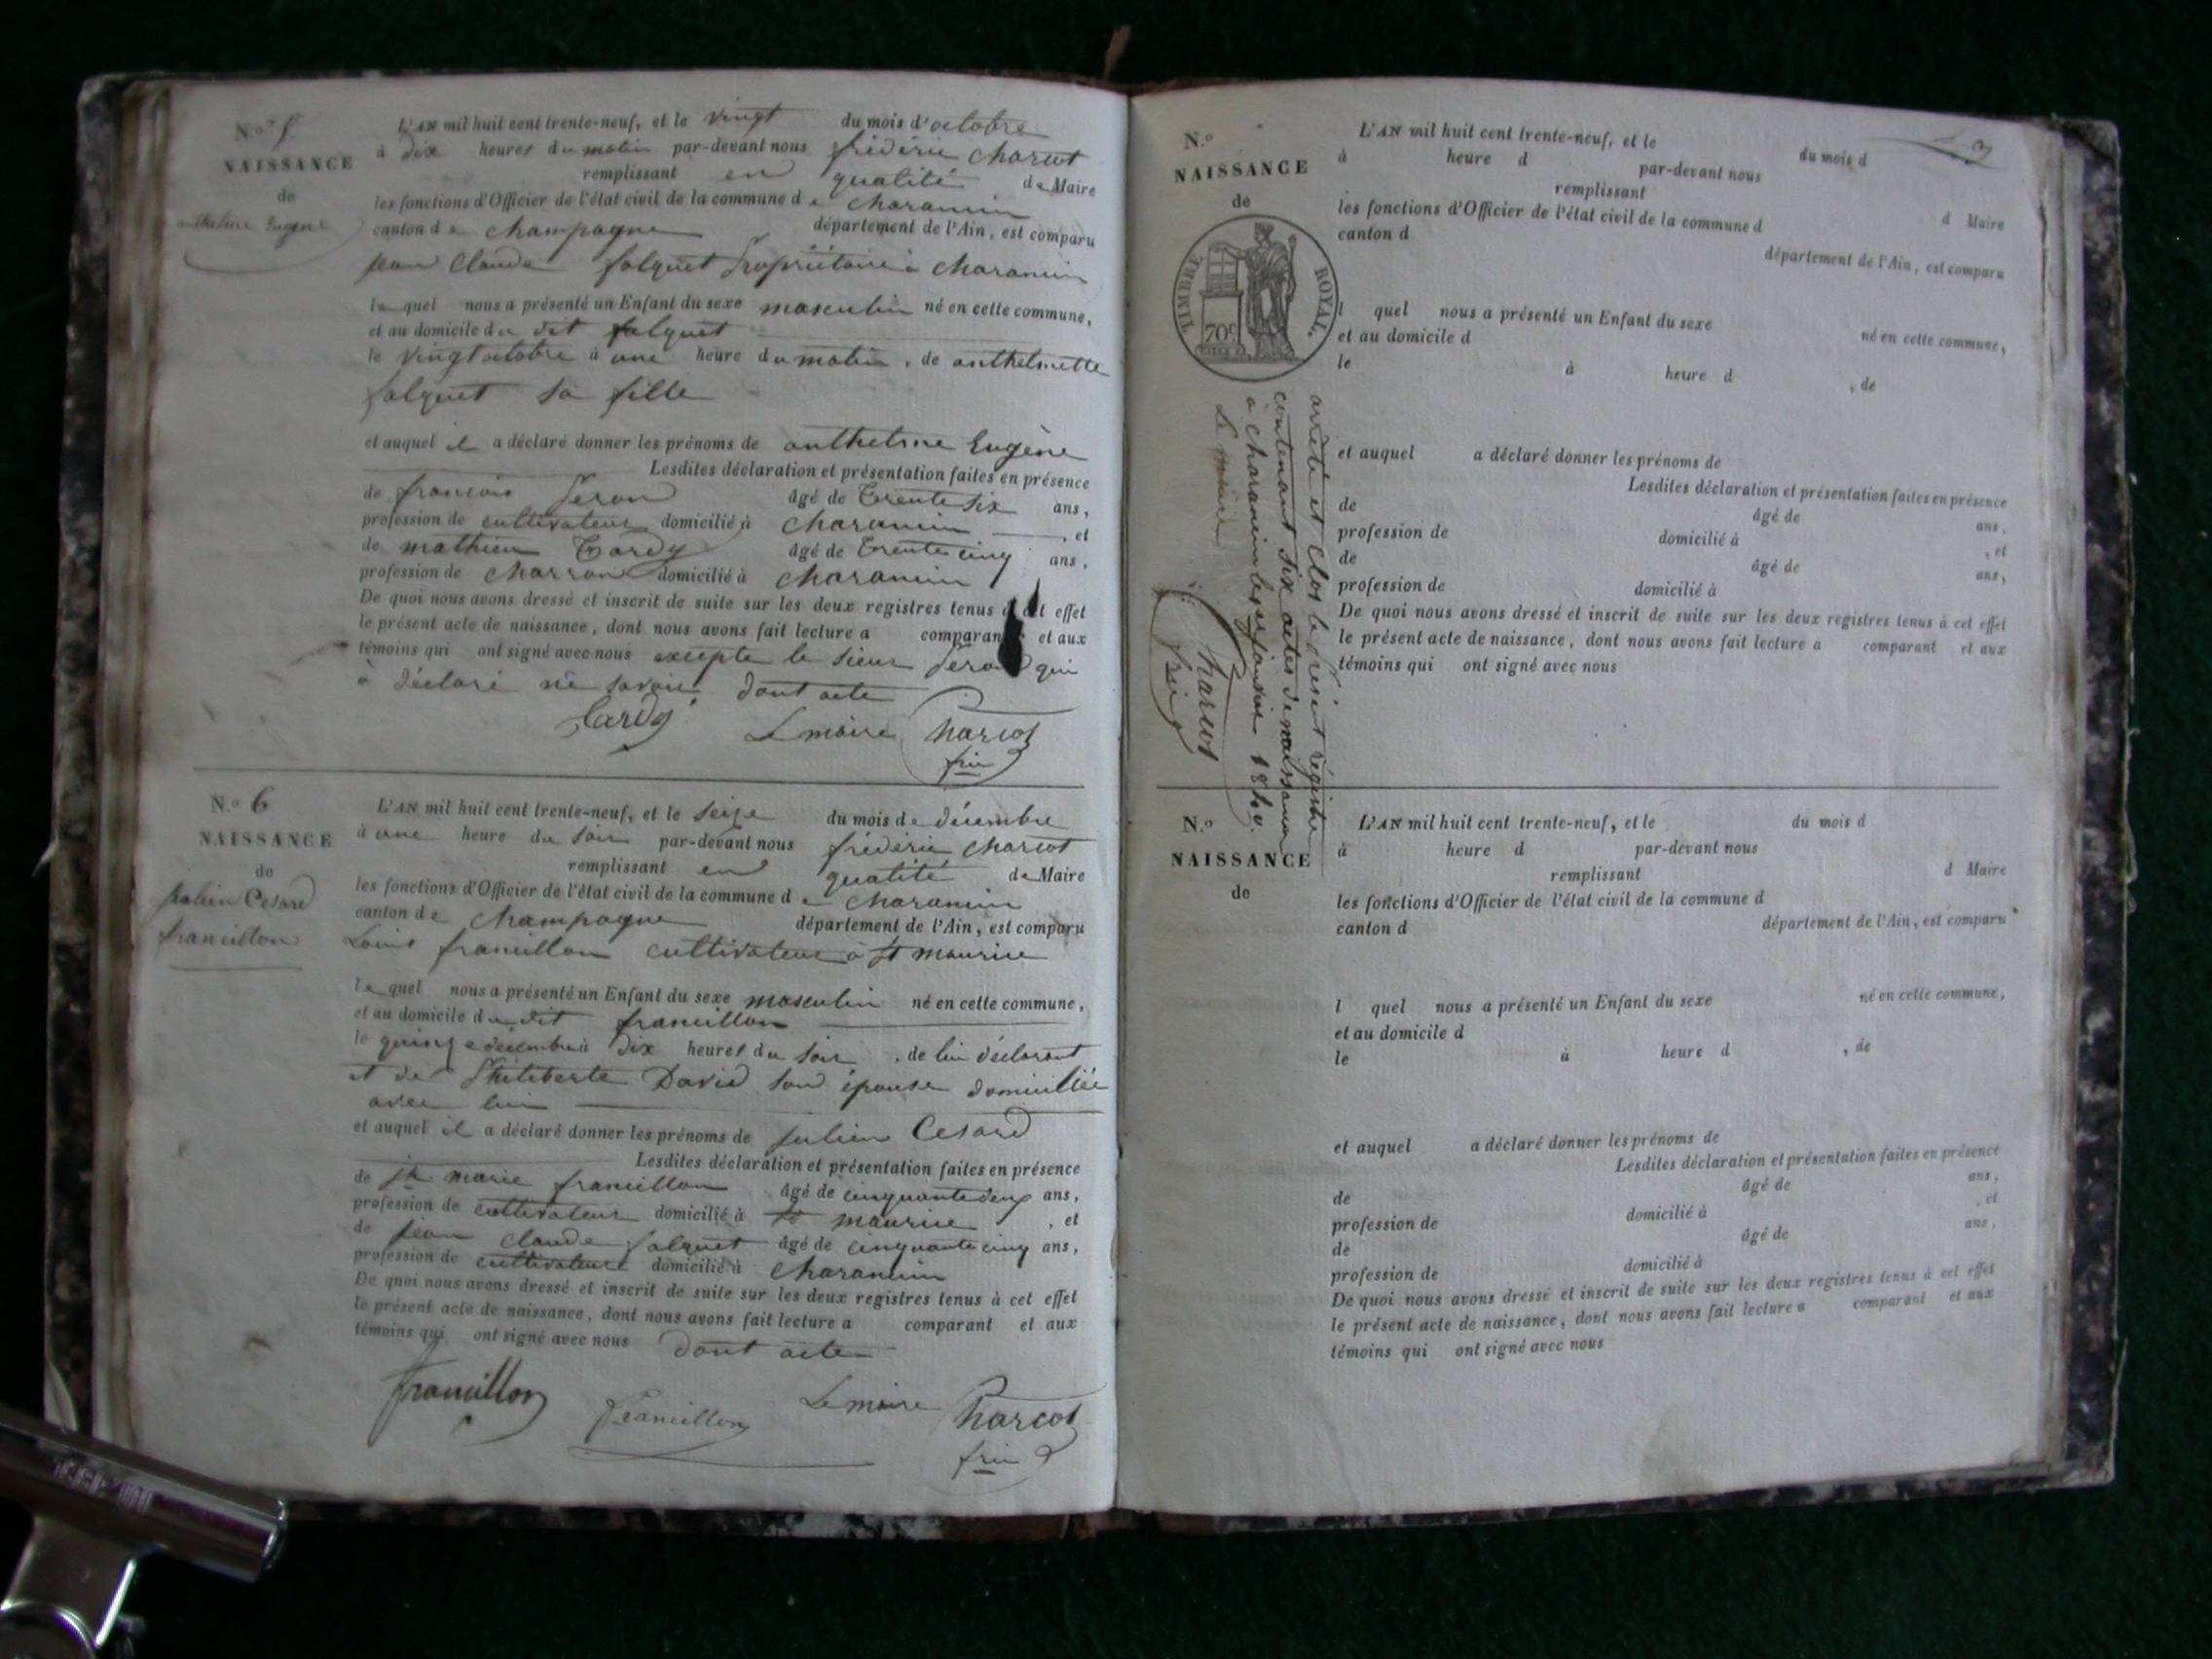 N.o 5.
NAISSANCE
de
anthelme Eugène
L'AN mil huit cent trente-neuf, et le vingt du mois d'octobre
à dix heures du matin par-devant nous frédéric Charcot
remplissant en qualité de Maire
les fonctions d'Officier de l'état civil de la commune de Charancin
canton de Champagne département de l'Ain, est comparu
jean Claude falquet Propriétaire à Charancin
lequel nous a présenté un Enfant du sexe masculin né en cette commune,
et au domicile du dit falquet
le vingt octobre à une heure du matin, de anthelmette
falquet sa fille
et auquel il a déclaré donner les prénoms de anthelme Eugène
Lesdites déclaration et présentation faites en présence
de francois âgé de Trente six ans,
profession de cultivateur domicilié à Charancin, et
de mathieu Tardy âgé de Trente cinq ans,
profession de Charron domicilié à Charancin
De quoi nous avons dressé et inscrit de suite sur les deux registres tenus à cet effet
le présent acte de naissance, dont nous avons fait lecture a comparant et aux
témoins qui ont signé avec nous excepte le sieur qui
à déclaré ne savoir dont acte
Tardy Le maire Charcot
N.o 6
NAISSANCE
de
julien Cesard
francillon
L'AN mil huit cent trente-neuf, et le seize du mois de décembre
à une heure du soir par-devant nous frédéric Charcot
remplissant en qualité de Maire
les fonctions d'Officier de l'état civil de la commune de Charancin
canton de Champagne département de l'Ain, est comparu
Louis francillon cultivateur à St maurice
lequel nous a présenté un Enfant du sexe masculin né en cette commune,
et au domicile du dit francillon
le quinze décembre à dix heures du soir, de lui déclarant
et de Philiberte David son épouse domiciliée
avec lui
et auquel il a déclaré donner les prénoms de julien Cesard
Lesdites déclaration et présentation faites en présence
de jh marie francillon âgé de cinquante deux ans,
profession de cultivateur domicilié à St maurice, et
de jean Claude falquet âgé de cinquante cinq ans,
profession de cultivateur domicilié à Charancin
De quoi nous avons dressé et inscrit de suite sur les deux registres tenus à cet effet
le présent acte de naissance, dont nous avons fait lecture a comparant et aux
témoins qui ont signé avec nous dont acte
francillon francillon Le maire Charcot
3
N.o
NAISSANCE
de
TIMBRE ROYAL
70c
L'AN mil huit cent trente-neuf, et le du mois d
à heure d par-devant nous
remplissant d Maire
les fonctions d'Officier de l'état civil de la commune d
canton d département de l'Ain, est comparu
l quel nous a présenté un Enfant du sexe né en cette commune,
et au domicile d
le à heure d , de
et auquel a déclaré donner les prénoms de
Lesdites déclaration et présentation faites en présence
de âgé de ans,
profession de domicilié à , et
de âgé de ans,
profession de domicilié à
De quoi nous avons dressé et inscrit de suite sur les deux registres tenus à cet effet
le présent acte de naissance, dont nous avons fait lecture a comparant et aux
témoins qui ont signé avec nous
arrêté et Clos le présent registre
contenant six actes de naissance
à Charancin le janvier 1840.
Le maire
Charcot
N.o
NAISSANCE
de
L'AN mil huit cent trente-neuf, et le du mois d
à heure d par-devant nous
remplissant d Maire
les fonctions d'Officier de l'état civil de la commune d
canton d département de l'Ain, est comparu
l quel nous a présenté un Enfant du sexe né en cette commune,
et au domicile d
le à heure d , de
et auquel a déclaré donner les prénoms de
Lesdites déclaration et présentation faites en présence
de âgé de ans,
profession de domicilié à , et
de âgé de ans,
profession de domicilié à
De quoi nous avons dressé et inscrit de suite sur les deux registres tenus à cet effet
le présent acte de naissance, dont nous avons fait lecture a comparant et aux
témoins qui ont signé avec nous